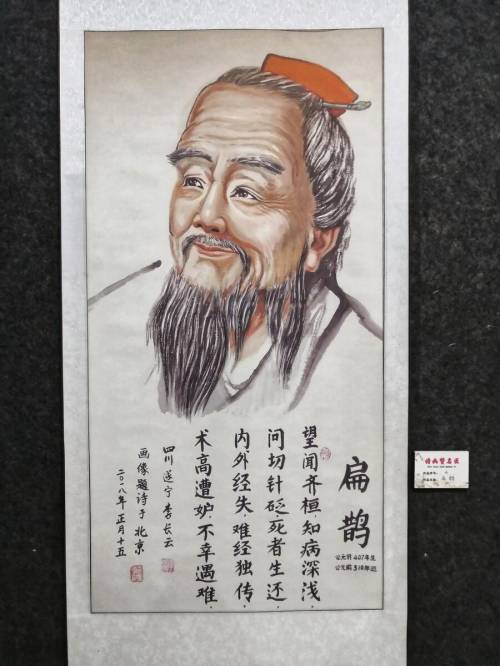 扁鹊
公元前407年生
公元前310年逝
望闻齐桓，知病深浅，
问切针砭死者生还，
内外经失，难经独传，
术高遭妒，不幸遇难，
四川遂宁李长云
画像题诗于北京
二〇一八年正月十五